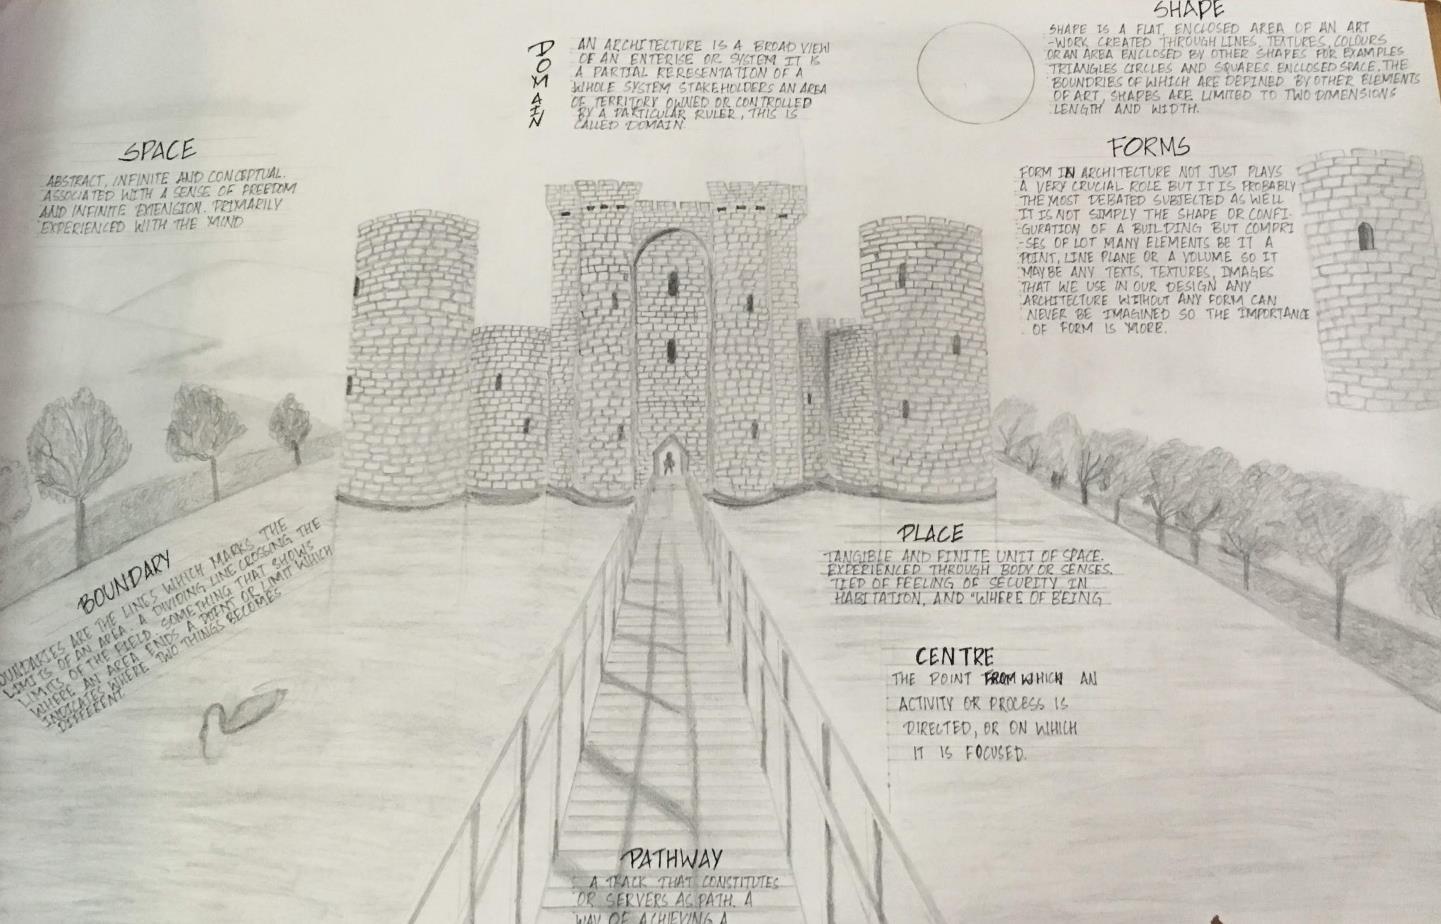 DOMAIN
AN ARCHITECTURE IS A BROAD VIEW
OF AN ENTERISE OR SYSTEM IT IS
A PARTIAL REPRESENTATION OF A
WHOLE SYSTEM STAKEHOLDERS AN AREA
OF TERRITORY OWNED OR CONTROLLED
BY A PARTICULAR RULER, THIS IS
CALLED DOMAIN.
SHAPE
SHAPE IS A FLAT, ENCLOSED AREA OF AN ART
-WORK CREATED THROUGH LINES, TEXTURES, COLOURS
OR AN AREA ENCLOSED BY OTHER SHAPES FOR EXAMPLES
TRIANGLES CIRCLES AND SQUARES. ENCLOSED SPACE, THE
BOUNDRIES OF WHICH ARE DEFINED BY OTHER ELEMENTS
OF ART, SHAPES ARE LIMITED TO TWO DIMENSIONS
LENGTH AND WIDTH.
SPACE
ABSTRACT, INFINITE AND CONCEPTUAL.
ASSOCIATED WITH A SENSE OF FREEDOM
AND INFINITE EXTENSION. PRIMARILY
EXPERIENCED WITH THE MIND
FORMS
FORM IN ARCHITECTURE NOT JUST PLAYS
A VERY CRUCIAL ROLE BUT IT IS PROBABLY
THE MOST DEBATED SUBJECTED AS WELL
IT IS NOT SIMPLY THE SHAPE OR CONFI-
-GURATION OF A BUILDING BUT COMPRI
-SES OF LOT MANY ELEMENTS BE IT A
POINT, LINE PLANE OR A VOLUME SO IT
MAYBE ANY TEXTS, TEXTURES, IMAGES
THAT WE USE IN OUR DESIGN ANY
ARCHITECTURE WITHOUT ANY FORM CAN
NEVER BE IMAGINED SO THE IMPORTANCE
OF FORM IS MORE.
BOUNDARY
OUNDARIES ARE THE LINES WHICH MARKS THE
LIMITS OF AN AREA. A DIVIDING LINE CROSSING THE
LIMITS OF THE FIELD. SOMETHING THAT SHOWS
WHERE AN AREA ENDS A POINT OR LIMIT WHICH
INDICATES WHERE TWO THINGS BECOMES
DIFFERENT
PLACE
TANGIBLE AND FINITE UNIT OF SPACE.
EXPERIENCED THROUGH BODY OR SENSES.
TIED OF FEELING OF SECURITY IN
HABITATION, AND "WHERE OF BEING
CENTRE
THE POINT FROM WHICH AN
ACTIVITY OR PROCESS IS
DIRECTED, OR ON WHICH
IT IS FOCUSED.
PATHWAY
A TRACK THAT CONSTITUTES
OR SERVERS AS PATH. A
WAY OF ACHIEVING A